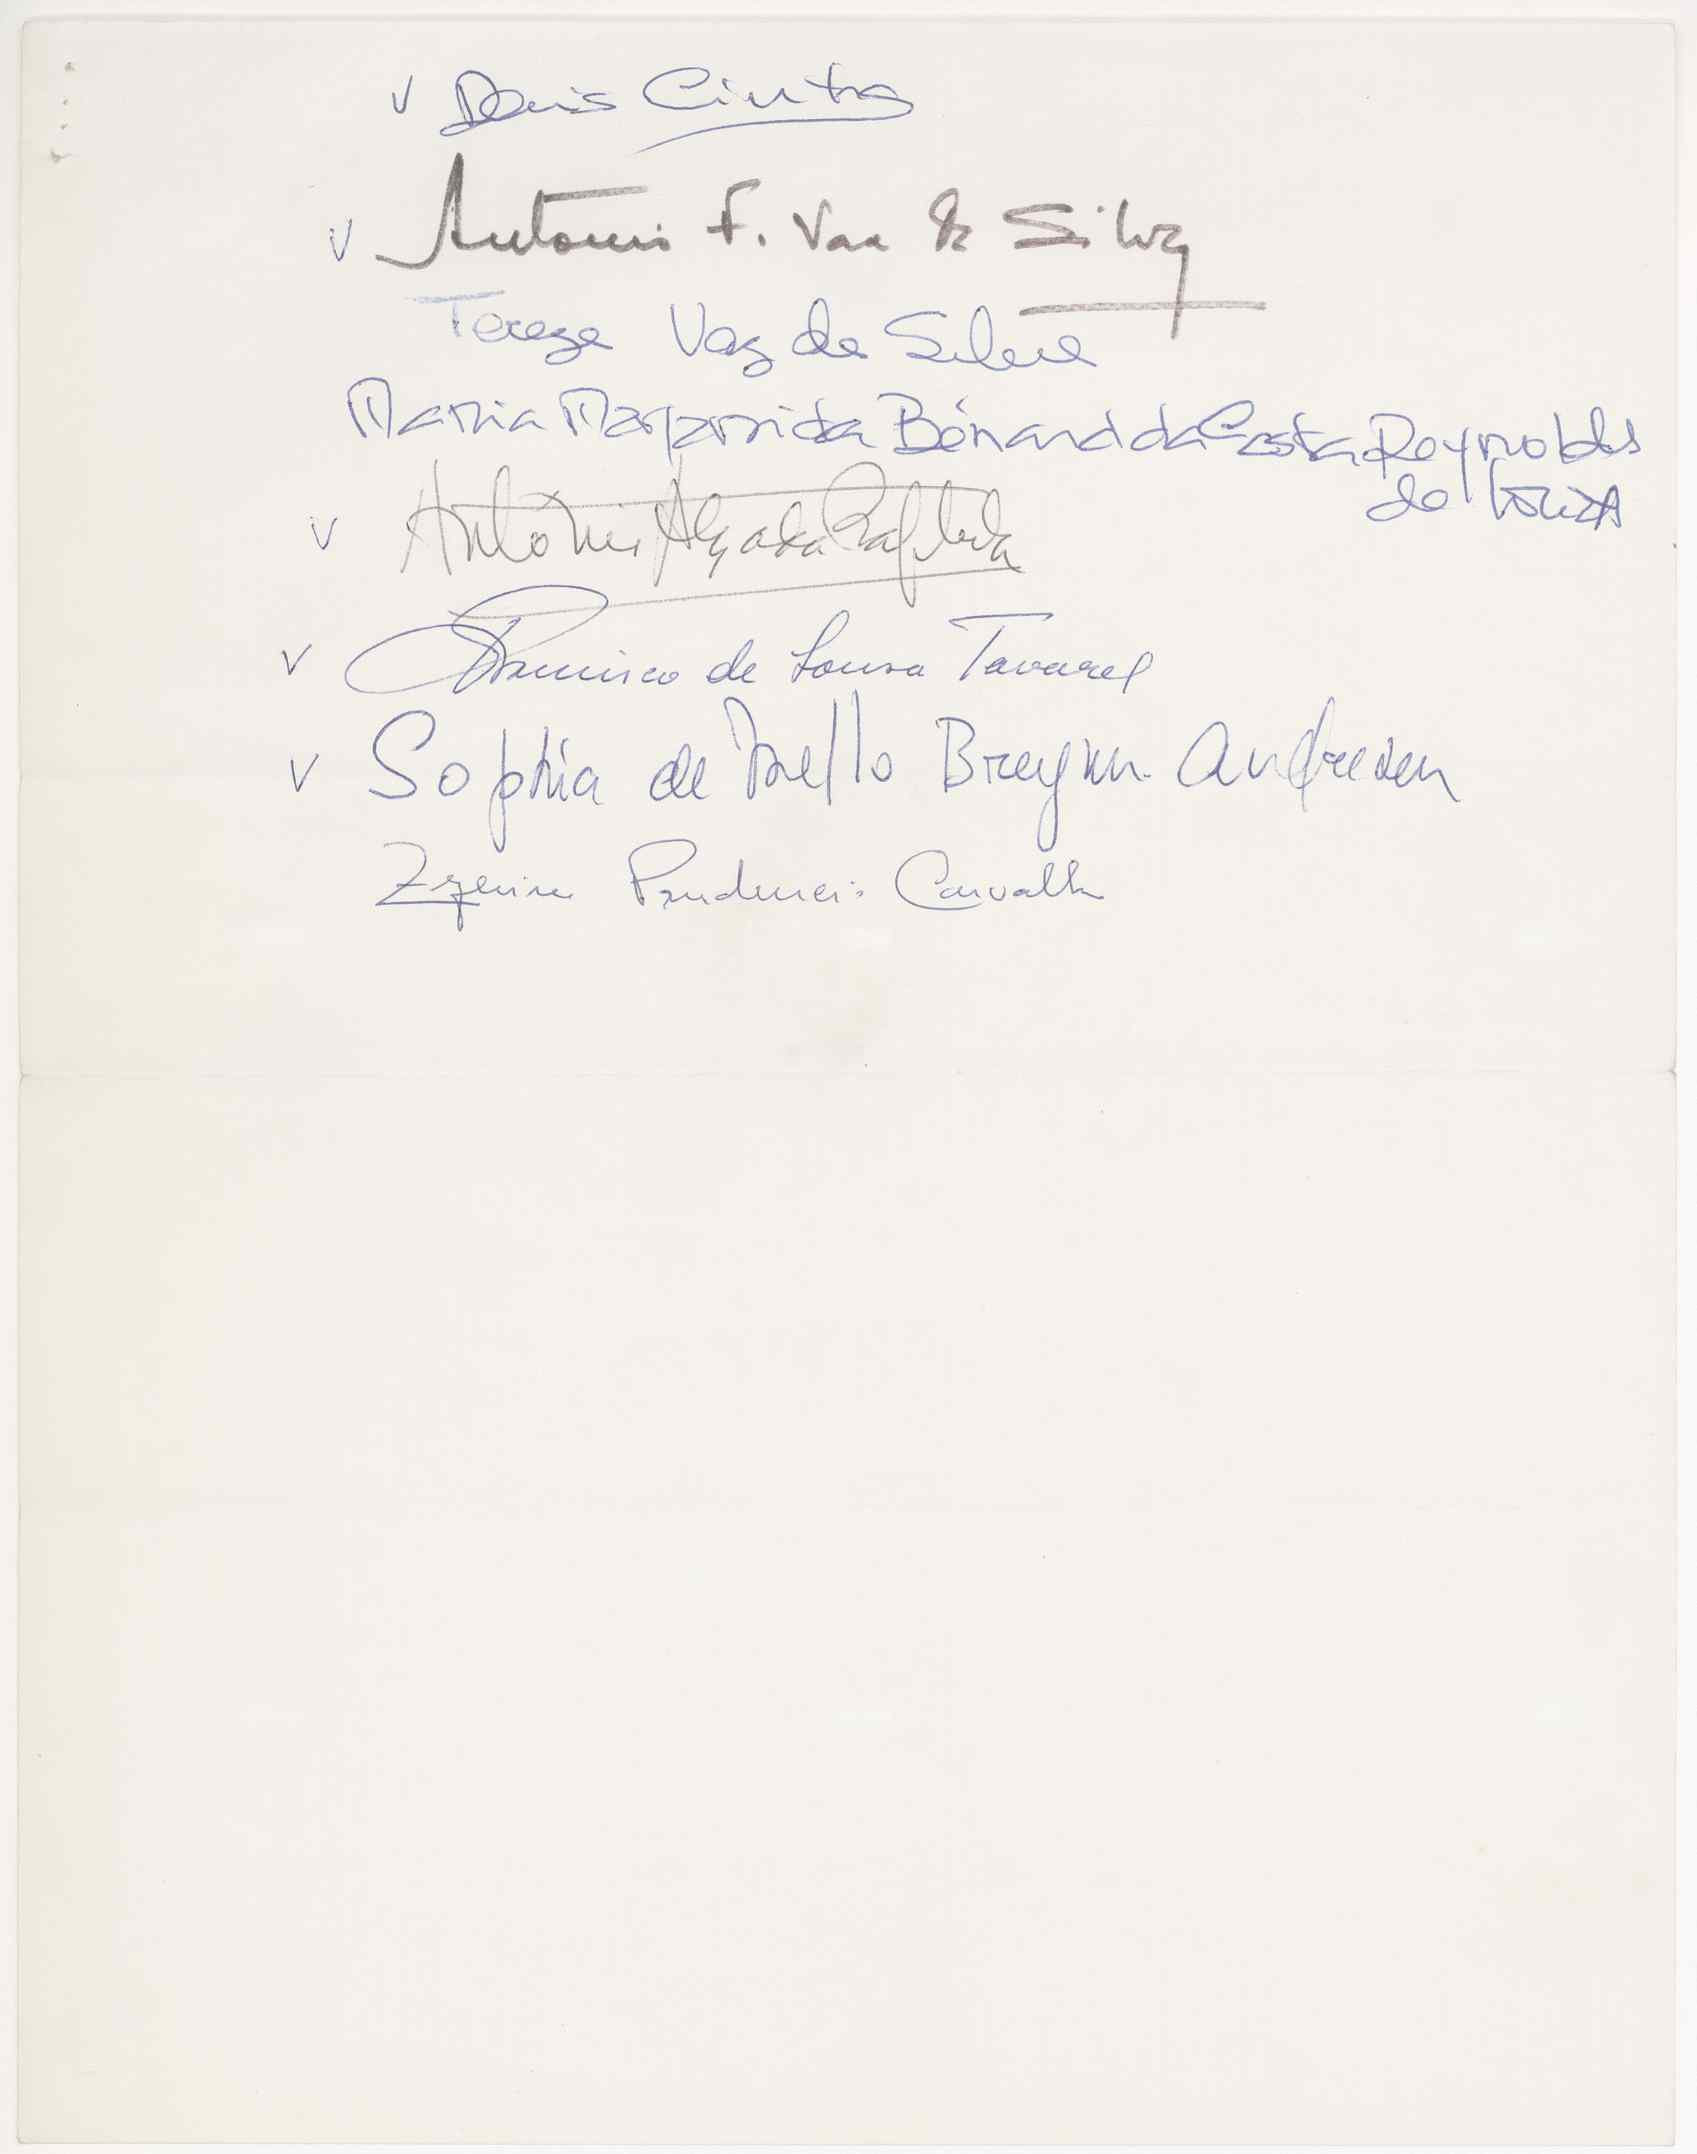 v Denis Cintra
v Antonio F. Vaz da Silva
Tereza Vaz da Silva
Maria Margarida Bénard da Costa Reynolds
de Souza
v António Alçada Baptista
v Francisco de Sousa Tavares
v Sophia de Mello Breyner Andresen
Prudencio Carvalho